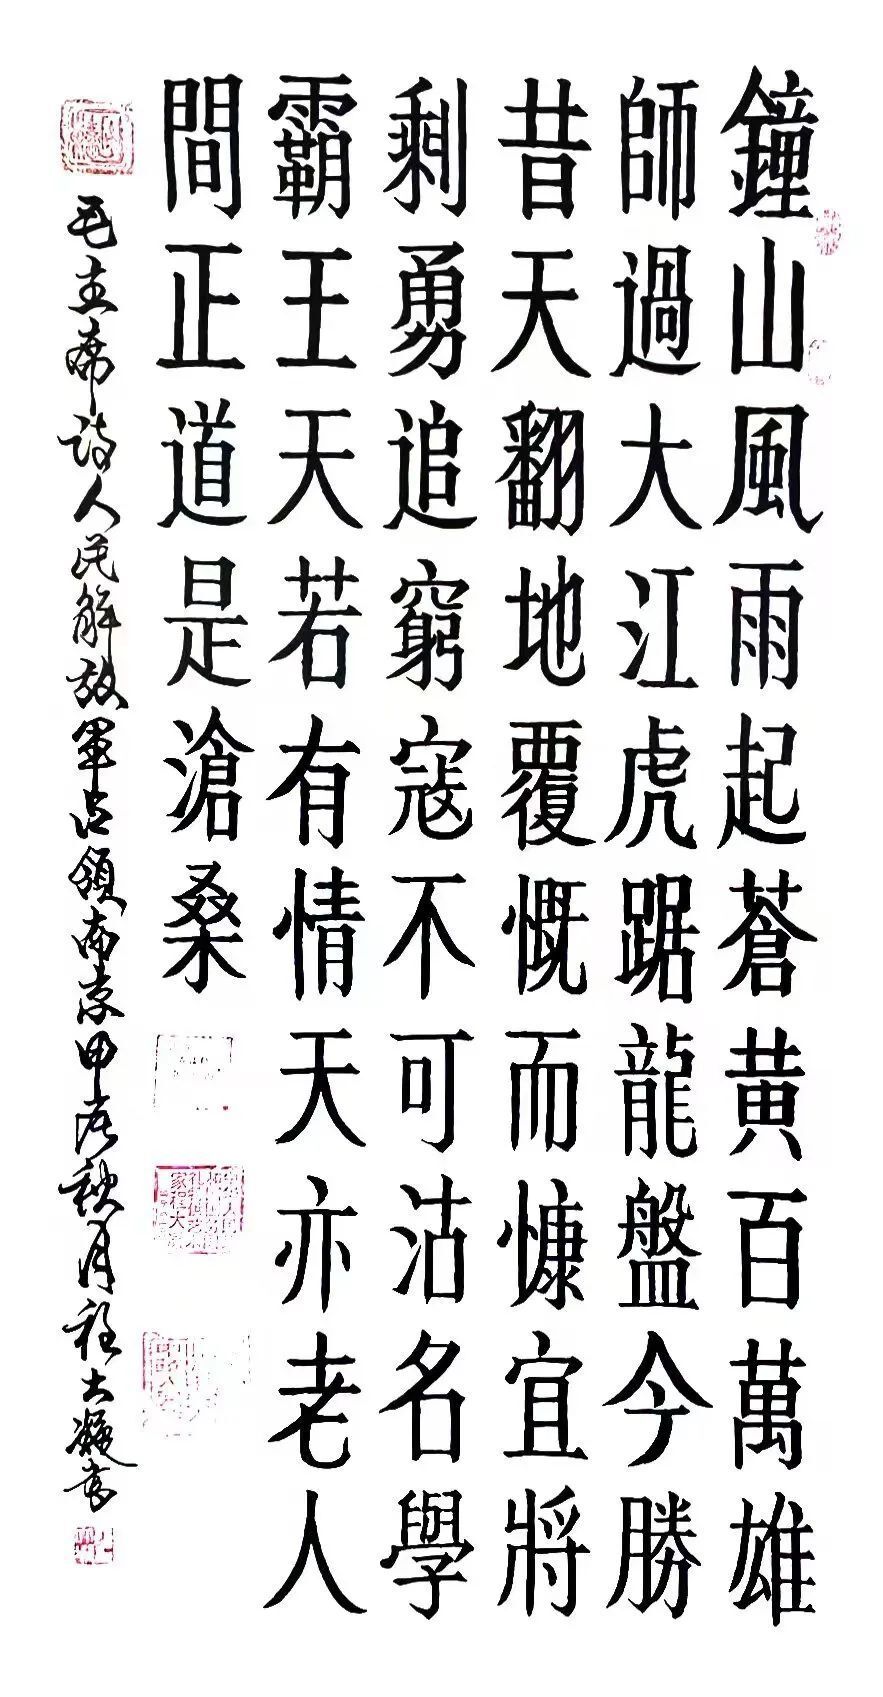 鐘山風雨起蒼黄百萬雄
師過大江虎踞龍盤今勝
昔天翻地覆慨而慷宜將
剩勇追窮寇不可沽名學
霸王天若有情天亦老人
間正道是滄桑
毛主席诗人民解放軍占領南京甲辰秋月程大凝书